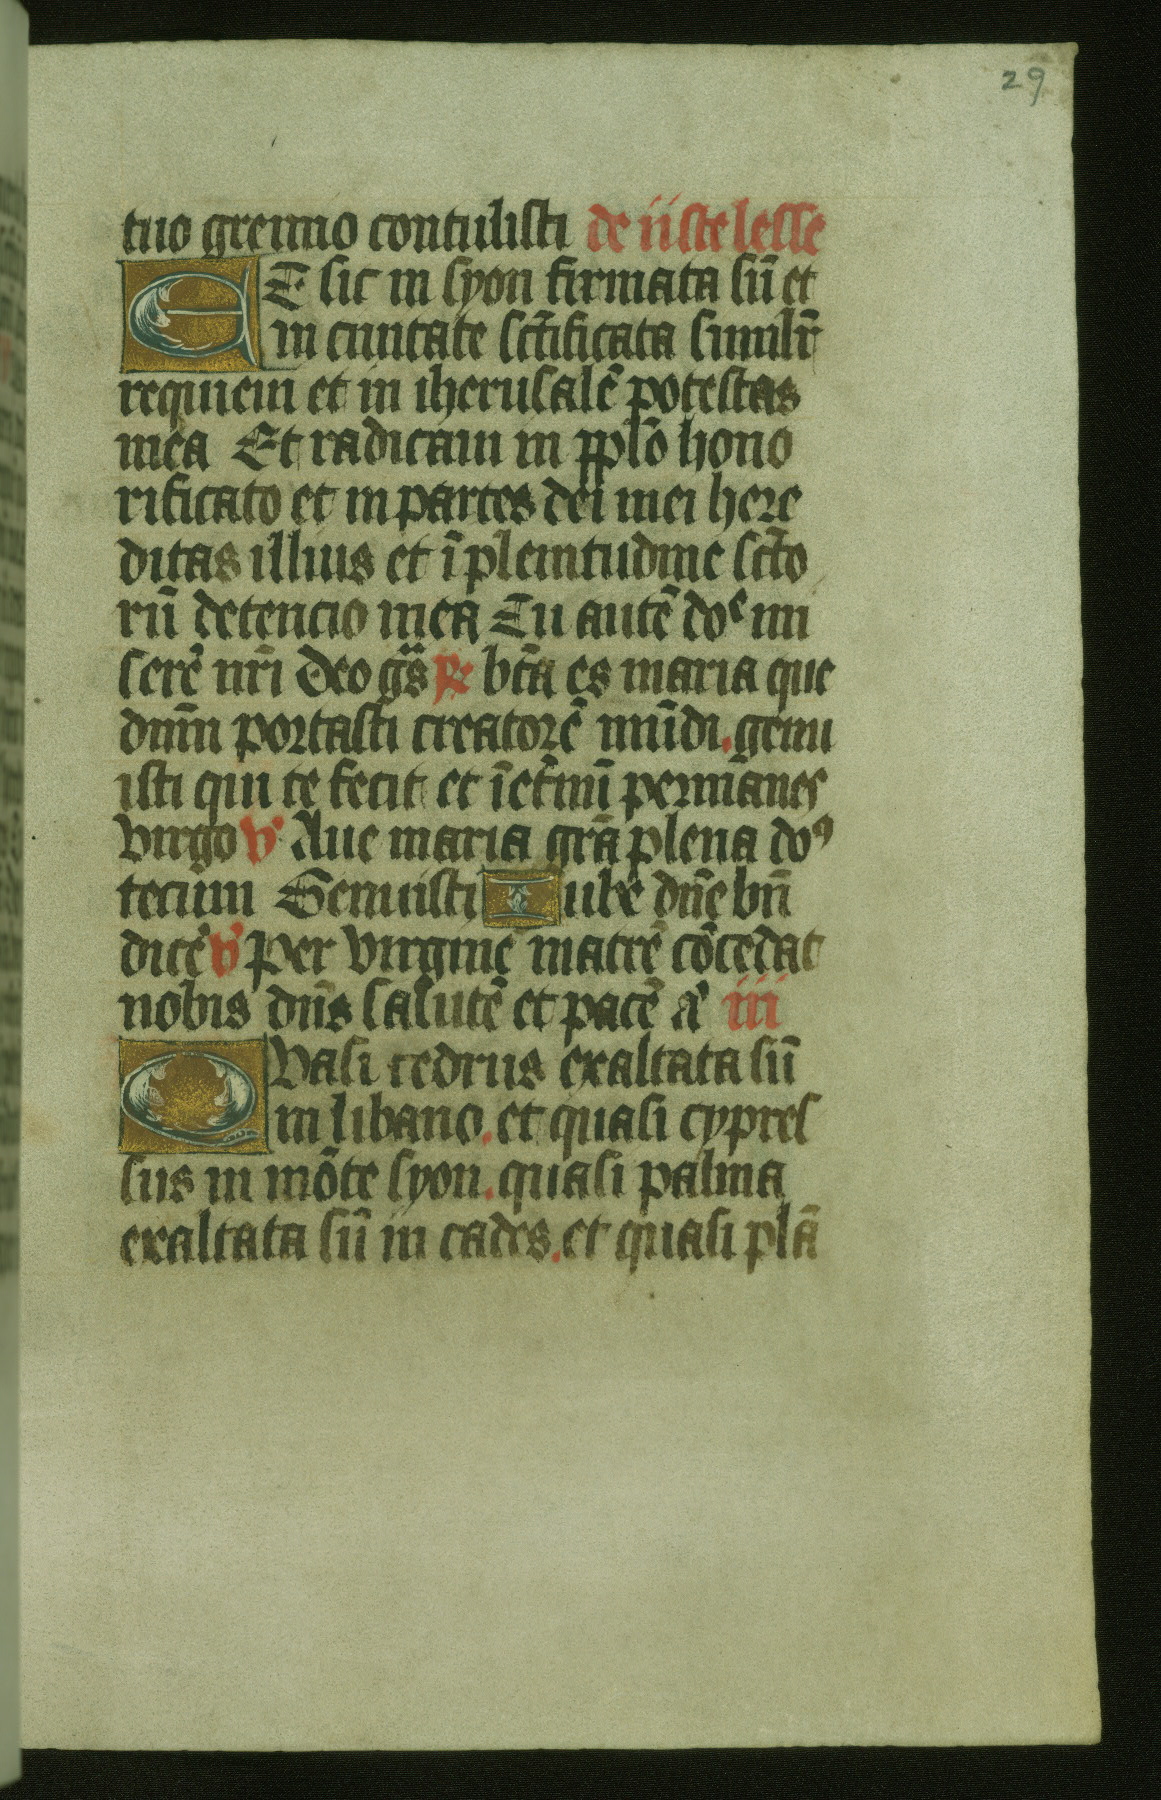 29
tuo gremio contulisti de iiste lesse
ET sic in syon firmata sū et
in ciuitate sc̄tificata similr̄
requieui et in iherusalē potestas
mea Et radicaui in pplō hono
rificato et in partes dei mei here
ditas illius et ī plenitudine sc̄to
rū detencio mea Tu autē do᷑ mi
serē nr̄i Deo gr̄s R bt̄a es maria que
dnm̄ portasti creatorē mūdi . genu
isti qui te fecit et īet̄nū permanes
virgo v Aue maria grā plena doꝰ
tecum Genuisti Iube dn̄e bn̄
dicē v Per virginē matrē cōcedat
nobis dn̄s salutē et pacē A iii
QVasi cedrus exaltata sū
in libano . et quasi cypres
sus in mōte syon . quasi palma
exaltata sū in cades . et quasi plā